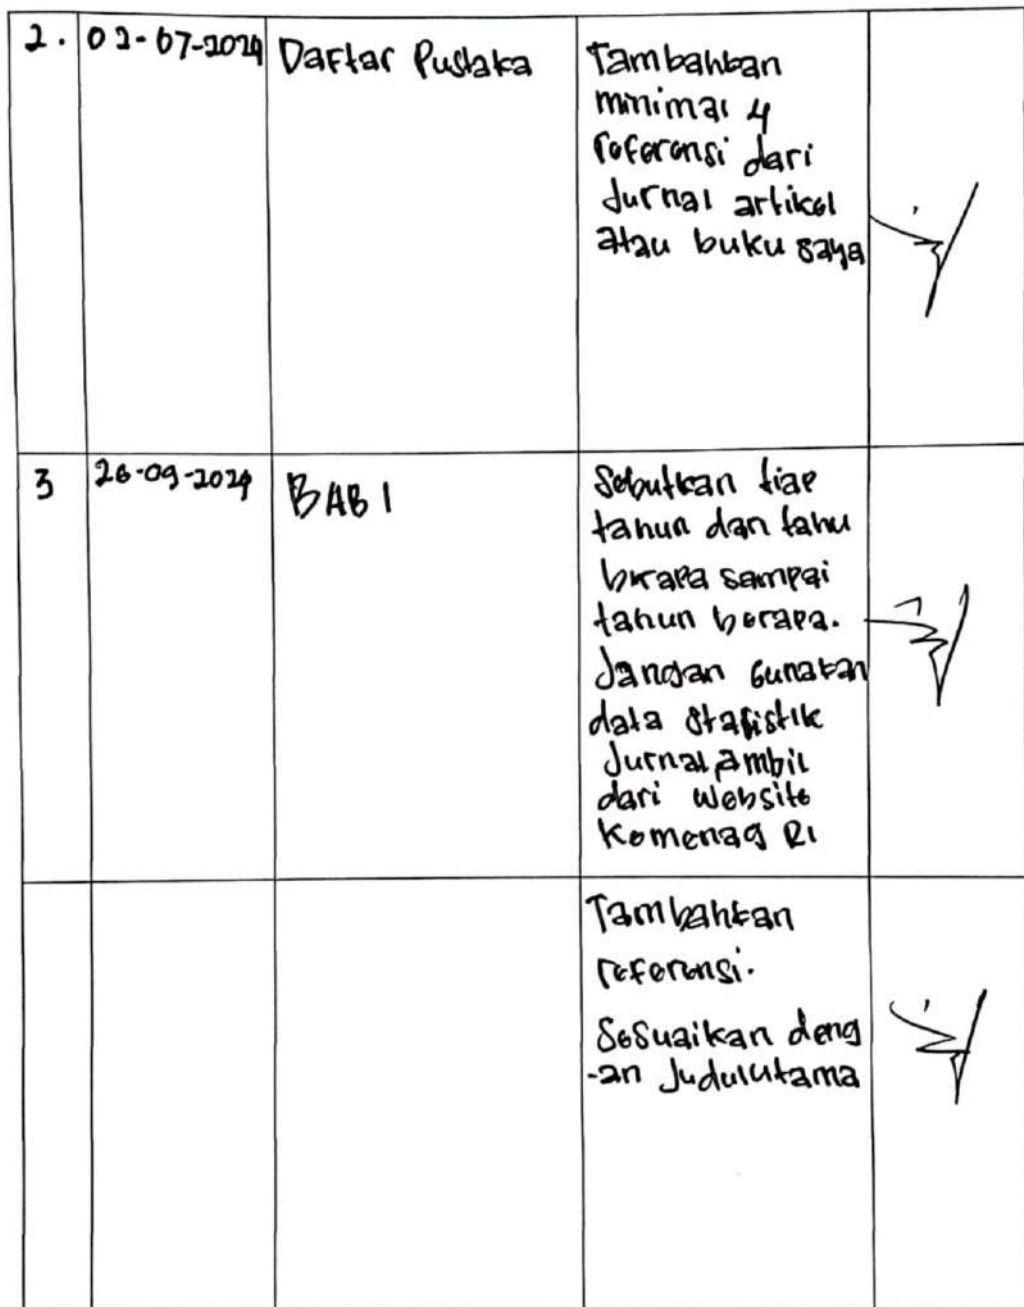 2. 02-07-2024 Daftar Pustaka Tambahkan
minimal 4
referensi dari
Jurnal artikel
atau buku saya
3 26-09-2024 BAB I Sebutkan tiap
tahun dan tahu
berapa sampai
tahun berapa.
Jangan Gunakan
data statistik
Jurnal, ambil
dari website
Kemenag RI
Tambahkan
referensi.
Sesuaikan deng
-an Judul utama